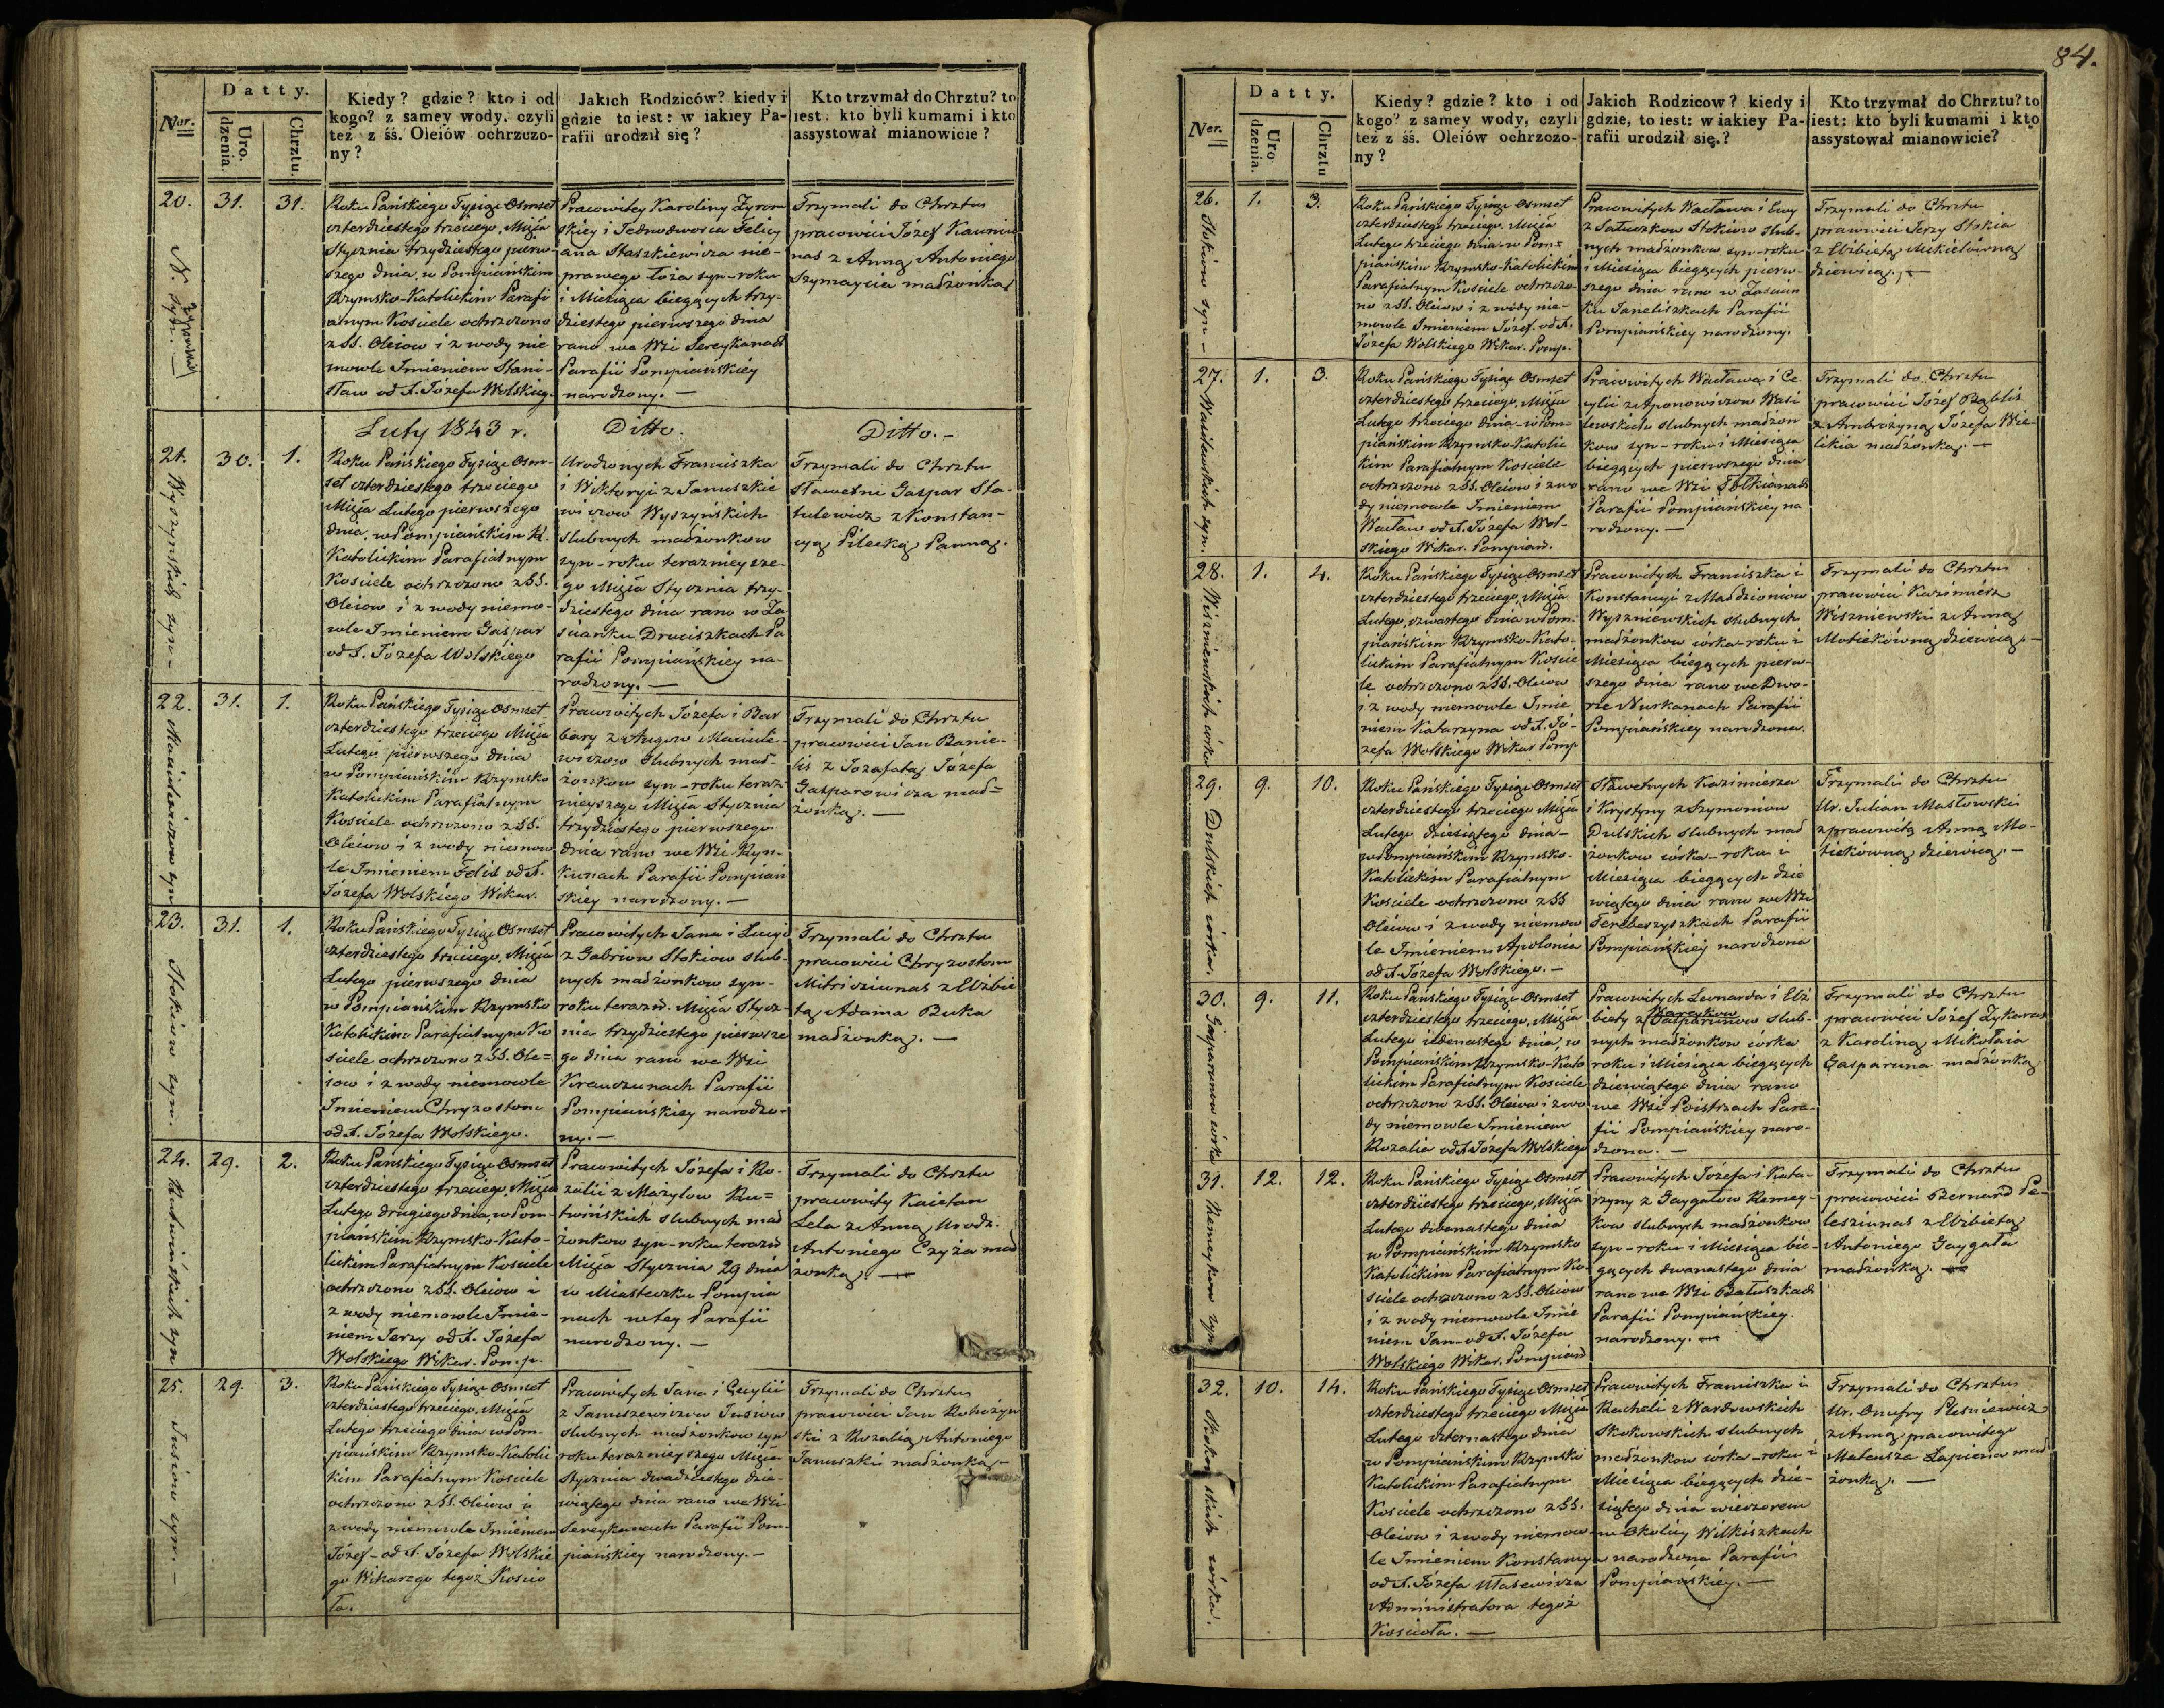 84.
Datty.
Ner.
Urodzenia.
Chrztu.
Kiedy? gdzie? kto i od
kogo? z samey wody, czyli
też z śś. Oleiów ochrzczo-
ny?
Jakich Rodziców? kiedy i
gdzie to iest: w iakiey Pa-
rafii urodził się?
Kto trzymał do Chrztu? to
iest: kto byli kumami i kto
assystował mianowicie?
20.
31.
31.
Roku Pańskiego Tysiąc Osmset
czterdziestego trzeciego, Miesiąca
Stycznia trzydziestego pierw-
szego dnia, w Pompiańskim
Rzymsko-Katolickim Parafi
alnym Kosciele ochrzczono
z SS. Oleiow i z wody nie
mowle Imieniem Stani-
sław od X. Józefa Wolskieg.
Pracowitey Karoliny Żyrom
skiey i Jednodworca Felicy
ana Staszkiewicza nie-
prawego łoża syn-roku
i Miesiąca biegących trzy-
dziestego pierwszego dnia
rano we Wsi Sereykanach
Parafii Pompiańskiey
narodzony. —
Trzymali do Chrztu
pracowici Józef Kauni
nas z Anną Antoniego
Szymaycia małżonką
Luty 1843 r.
Ditto.
Ditto. -
21.
Wyszyńskich syn -
30.
1.
Roku Pańskiego Tysiąc Osm-
set czterdziestego trzeciego
Miąca Lutego pierwszego
dnia, w Pompiańskim R.
Katolickim Parafialnym
Kosciele ochrzczono z SS.
Oleiow i z wody niemo-
wle Imieniem Gaspar
od X. Józefa Wolskiego
Urodzonych Franciszka
i Wiktoryi z Januszkie
wiczow Wyszyńskich
slubnych małżonkow
syn-roku teraznieysze-
go Miąca Stycznia trzy-
dziestego dnia rano w Za
scianku Druciszkach Pa
rafii Pompiańskiey na-
rodzony. —
Trzymali do Chrztu
sławetni Gaspar Sta-
tulewicz z Konstan-
cyą Pilecką Panną.
22.
31.
1.
Roku Pańskiego Tysiąc Osmset
czterdziestego trzeciego Miąca
Lutego pierwszego dnia
w Pompiańskim Rzymsko
Katolickim Parafialnym
Kosciele ochrzczono z SS.
Oleiow i z wody niemow
le Imieniem Felix od X.
Józefa Wolskiego Wikar.
Pracowitych Józefa i Bar
bary z Augow Maciule-
wiczow slubnych mał-
żonkow syn-roku teraz
nieyszego Miąca Stycznia
trzydziestego pierwszego
dnia rano we Wsi Ryn-
kunach Parafii Pompiań
skiey narodzony. —
Trzymali do Chrztu
pracowici Jan Banie-
lis z Jozafatą Józefa
Gasparowicza mał=
żonką. —
23.
Stokiow syn.
31.
1.
Roku Pańskiego Tysiąc Osmset
czterdziestego trzeciego, Miąca
Lutego pierwszego dnia
w Pompiańskim Rzymsko
Katolickim Parafialnym Ko
sciele ochrzczono z SS. Ole=
iow i z wody niemowle
Imieniem Chryzostom
od X. Józefa Wolskiego.
Pracowitych Jana i Łucyi
z Gabriow Stokiow slub-
nych małżonkow syn-
roku terazn. Miąca Stycz-
nia trzydziestego pierwsze
go dnia rano we Wsi
Krauczunach Parafii
Pompiańskiey narodzo-
ny. —
Trzymali do Chrztu
pracowici Chryzostom
Mitridziunas z Elżbie
tą Adama Buka
małżonką. —
24.
Rutwińskich syn
29.
2.
Roku Pańskiego Tysiąc Osmset
czterdziestego trzeciego, Miąca
Lutego drugiego dnia, w Pom-
piańskim Rzymsko-Kato-
lickim Parafialnym Kosciele
ochrzczono z SS. Oleiow i
z wody niemowle Imie-
niem Jerzy od X. Józefa
Wolskiego Wikar. Pomp.
Pracowitych Józefa i Ro-
zalii z Mażylow Ru=
twińskich slubnych mał
żonkow syn-roku terazn
Miąca Stycznia 29 dnia
w Miasteczku Pompia
nach w tey Parafii
narodzony. —
Trzymali do Chrztu
pracowity Kaietan
Lela z Anną Urodz.
Antoniego Czyża mał
żonką. —
25.
Jusiow syn. —
29.
3.
Roku Pańskiego Tysiąc Osmset
czterdziestego trzeciego, Miąca
Lutego trzeciego dnia w Pom-
piańskim Rzymsko-Katolic
kim Parafialnym Kosciele
ochrzczono z SS. Oleiow i
z wody niemowle Imieniem
Józef - od X. Józefa Wolskie
go Wikarego tegoż Koscio
ła.
Pracowitych Jana i Cecylii
z Januszewiczow Jusiow
slubnych małżonkow syn
roku teraznieyszego Miąca
Stycznia dwudziestego dzie-
wiątego dnia rano we Wsi
Sereykanach Parafii Pom-
piańskiey narodzony. —
Trzymali do Chrztu
pracowici Jan Rohożyn
ski z Rozalią Antoniego
Januszki małżonką -
Datty.
Ner.
Urodzenia.
Chrztu
Kiedy? gdzie? kto i od
kogo? z samey wody, czyli
też z śś. Oleiów ochrzczo-
ny?
Jakich Rodzicow? kiedy i
gdzie, to iest: w iakiey Pa-
rafii urodził się.?
Kto trzymał do Chrztu? to
iest: kto byli kumami i kto
assystował mianowicie?
26.
Stokiow syn -
1.
3.
Roku Pańskiego Tysiąc Osmset
czterdziestego trzeciego, Miąca
Lutego trzeciego dnia w Pom=
piańskim Rzymsko-Katolickim
Parafialnym Kosciele ochrzczo-
no z SS. Oleiow i z wody nie-
mowle Imieniem Józef. od X.
Józefa Wolskiego Wikar. Pomp.
Pracowitych Wacława i Ewy
z Sałuczkow Stokiow slub-
nych małżonkow syn-roku
i Miesiąca biegących pierw-
szego dnia rano w Zascian
ku Janeliszkach Parafii
Pompiańskiey narodzony.
Trzymali do Chrztu
pracowici Jerzy Stokia
z Elżbietą Mikielówną
dziewicą. —
27.
Wasilewskich syn.
1.
3.
Roku Pańskiego Tysiąc Osmset
czterdziestego trzeciego, Miąca
Lutego trzeciego dnia - w Pom-
piańskim Rzymsko-Katolic
kim Parafialnym Kosciele
ochrzczono z SS. Oleiow i z wo
dy niemowle Imieniem
Wacław od X. Józefa Wol-
skiego Wikar. Pompian.
Pracowitych Wacława i Ce
cylii z Aponowiczow Wasi
lewskich slubnych małżon
kow syn-roku i Miesiąca
biegących pierwszego dnia
rano we Wsi Tołkianach
Parafii Pompiańskiey na
rodzony. —
Trzymali do Chrztu
pracowici Józef Rząblis
z Ambrożyną Józefa Wie-
likia małżonką. —
28.
Wiszniewskich córka
1.
4.
Roku Pańskiego Tysiąc Osmset
czterdziestego trzeciego, Miąca
Lutego, czwartego dnia w Pom-
piańskim Rzymsko-Kato-
lickim Parafialnym Koscie
le ochrzczono z SS. Oleiow
i z wody niemowle Imie
niem Katarzyna od X. Jó-
zefa Wolskiego Wikar Pomp
Pracowitych Franciszka i
Konstancyi z Maldzionow
Wyszniewskich slubnych
małżonkow córka-roku i
Miesiąca biegących pierw-
szego dnia rano we Dwo-
rze Nurkanach Parafii
Pompiańskiey narodzona.
Trzymali do Chrztu
pracowici Kazimierz
Wiszniewski z Anną
Motiekówną dziewicą. —
29.
Dulskich córka.
9.
10.
Roku Pańskiego Tysiąc Osmset
czterdziestego trzeciego Miąca
Lutego dziesiątego dnia-
w Pompiańskim Rzymsko-
Katolickim Parafialnym
Kosciele ochrzczono z SS
Oleiow i z wody niemow
le Imieniem Apolonia
od X. Józefa Wolskiego. —
Sławetnych Kazimierza
i Krystyny z Szymoniow
Dulskich slubnych mał
żonkow córka-roku i
Miesiąca biegących dzie
wiątego dnia rano we Wsi
Terebeszyszkach Parafii
Pompiańskiey narodzona
Trzymali do Chrztu
Ur. Julian Masłowski
z pracowitą Anną Mo-
tiekówną dziewicą. —
30.
Gasparunow córka
9.
11.
Roku Pańskiego Tysiąc Osmset
czterdziestego trzeciego, Miąca
Lutego iedenastego dnia, w
Pompiańskim Rzymsko-Kato
lickim Parafialnym Kosciele
ochrzczono z SS. Oleiow i z wo
dy niemowle Imieniem
Rozalia od X. Józefa Wolskiego
Pracowitych Leonarda i Elż
biety z Gasparunow slub-
nych małżonkow córka
roku i Miesiąca biegących
dziewiątego dnia rano
we Wsi Poistrzach Para-
fii Pompiańskiey naro-
dzona. —
Trzymali do Chrztu
pracowici Józef Żykaras
z Karoliną Mikołaia
Gasparuna małżonką
31.
Remeykow syn
12.
12.
Roku Pańskiego Tysiąc Osmset
czterdziestego trzeciego, Miąca
Lutego dwónastego dnia
w Pompiańskim Rzymsko
Katolickim Parafialnym Ko-
sciele ochrzczono z SS. Oleiow
i z wody niemowle Imie
niem Jan - od X. Józefa
Wolskiego Wikar. Pompian
Pracowitych Józefa i Kata-
rzyny z Gaygałow Remey-
kow slubnych małżonkow
syn-roku i Miesiąca bie-
gących dwanastego dnia
rano we Wsi Bałuszkach
Parafii Pompiańskiey
narodzony. —
Trzymali do Chrztu
pracowici Bernard Pe-
lesziunas z Elżbietą
Antoniego Gaygała
małżonką. —
32.
Skokowskich córka.
10.
14.
Roku Pańskiego Tysiąc Osmset
czterdziestego trzeciego Miąca
Lutego czternastego dnia
w Pompiańskim Rzymsko
Katolickim Parafialnym
Kosciele ochrzczono z SS.
Oleiow i z wody niemow-
le Imieniem Konstancya
od X. Józefa Ułasewicza
Administratora tegoż
Koscioła. —
Pracowitych Franciszka i
Racheli z Wardowskich
Skokowskich slubnych
małżonkow córka-roku i
Miesiąca biegących dzie-
siątego dnia wieczorem
w Okolicy Wilkiszkach
narodzona Parafii
Pompiańskiey. —
Trzymali do Chrztu
Ur. Onufry Plesniewicz
z Anną pracowitego
Mateusza Łapiena mał
żonką. —